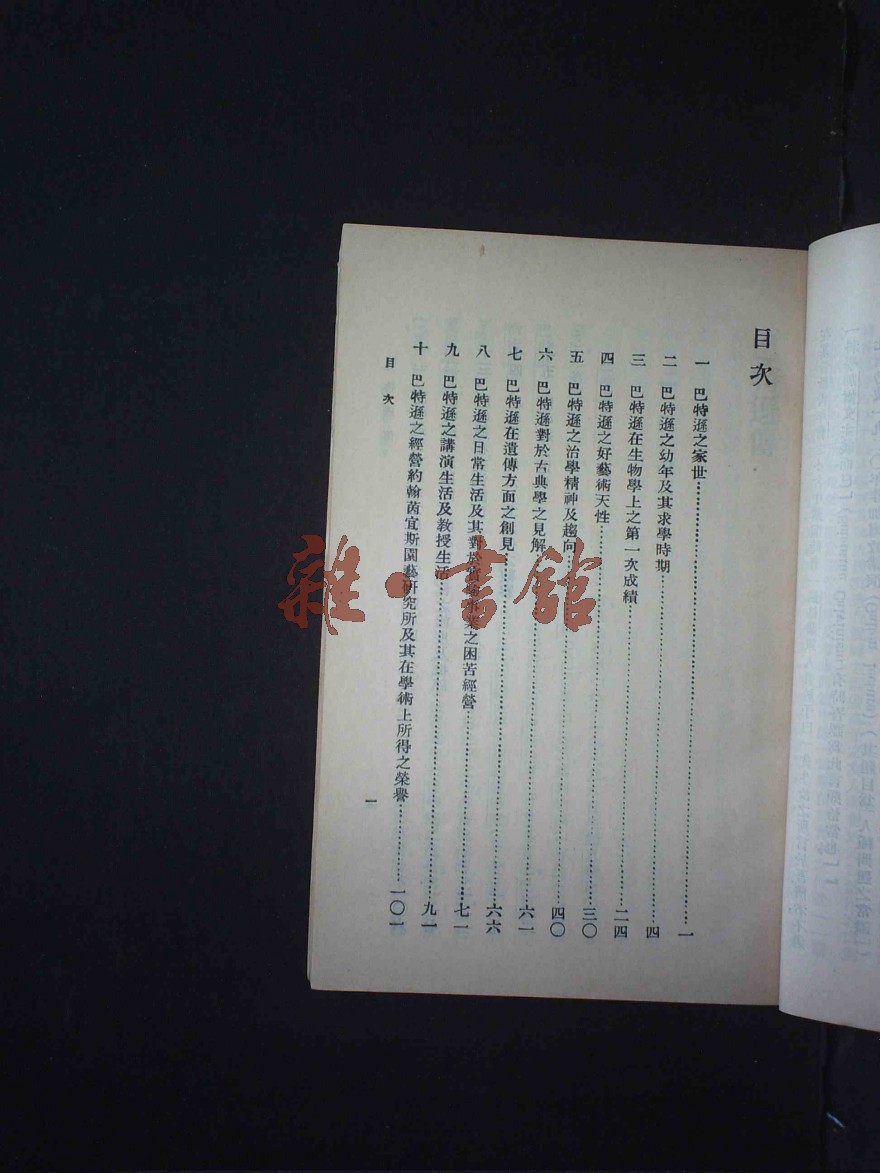 目次
一 巴特遜之家世……一
二 巴特遜之幼年及其求學時期……四
三 巴特遜在生物學上之第一次成績……二四
四 巴特遜之好藝術天性……三〇
五 巴特遜之治學精神及趨向……四〇
六 巴特遜對於古典學之見解……六一
七 巴特遜在遺傳方面之創見……六六
八 巴特遜之日常生活及其對於實驗事業之困苦經營……七一
九 巴特遜之講演生活及教授生活……九一
十 巴特遜之經營約翰茵宜斯園藝研究所及其在學術上所得之榮譽……一〇一
目次
一
雜·書館